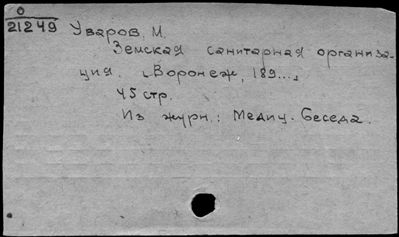 О
21249
Уваров, М.
Земская санитарная организа-
ция. [Воронеж, 189...]
45 стр.
Из журн.: Медиц. беседа.